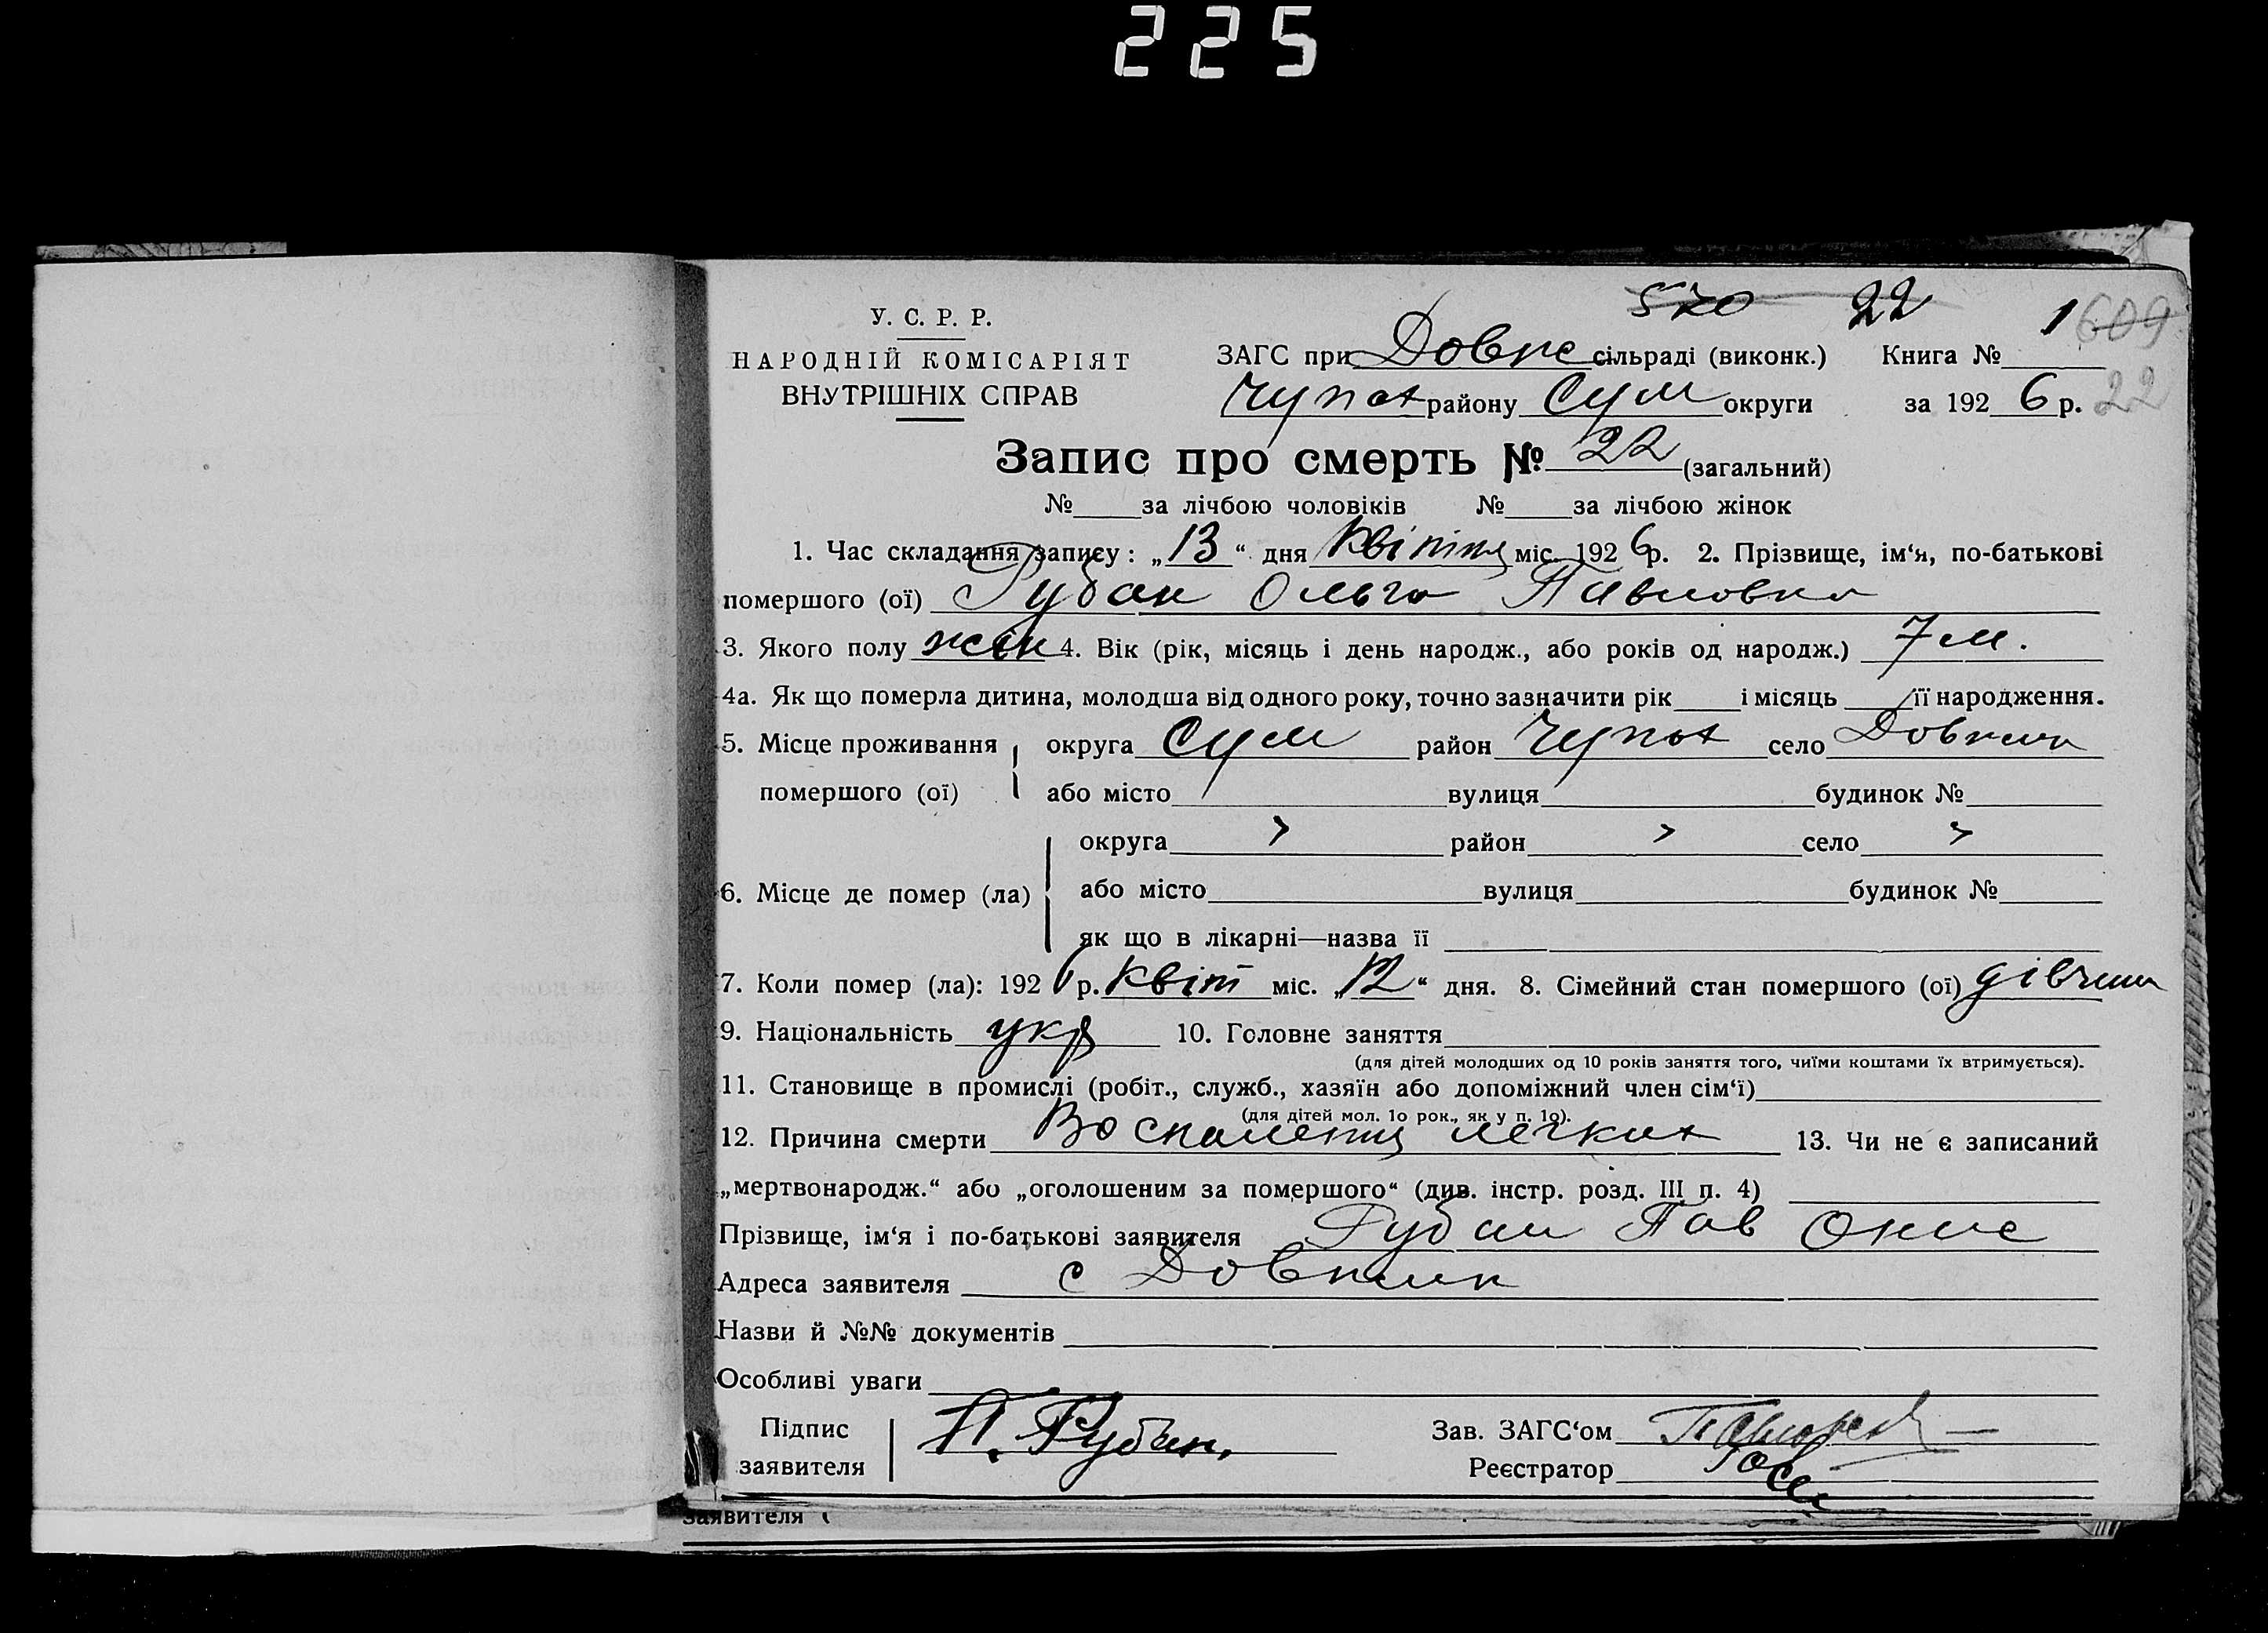 225
570 22 1 609
У. С. Р. Р.
НАРОДНІЙ КОМІСАРІЯТ
ВНУТРІШНІХ СПРАВ
ЗАГС при сільраді (виконк.) Книга №
Чупах району Сум округи за 1926 р. 22
Запис про смерть № 22 (загальний)
№ за лічбою чоловіків № за лічбою жінок
1. Час складання запису: „13“ дня Квітня міс. 1926 р. 2. Прізвище, ім‘я, по-батькові
помершого (ої) Рубан Ольга Павловна
3. Якого полу жін 4. Вік (рік, місяць і день народж., або років од народж.) 7 м.
4а. Як що померла дитина, молодша від одного року, точно зазначити рік і місяць її народження.
5. Місце проживання округа Сум район Чупах село
помершого (ої) або місто вулиця будинок №
округа район село
6. Місце де помер (ла) або місто вулиця будинок №
як що в лікарні—назва її
7. Коли помер (ла): 1926 р. Квіт міс. „12“ дня. 8. Сімейний стан помершого (ої) дівчина
9. Національність укр 10. Головне заняття
(для дітей молодших од 10 років заняття того, чиїми коштами їх втримується).
11. Становище в промислі (робіт., служб., хазяїн або допоміжний член сім‘ї)
(для дітей мол. 10 рок., як у п. 10).
12. Причина смерти Воспаления легких 13. Чи не є записаний
„мертвонародж.“ або „оголошеним за помершого“ (див. інстр. розд. III п. 4)
Прізвище, ім‘я і по-батькові заявителя Рубан Пав
Адреса заявителя с
Назви й №№ документів
Особливі уваги
Підпис
заявителя П. Рубан.
Зав. ЗАГС‘ом
Реєстратор
заявителя